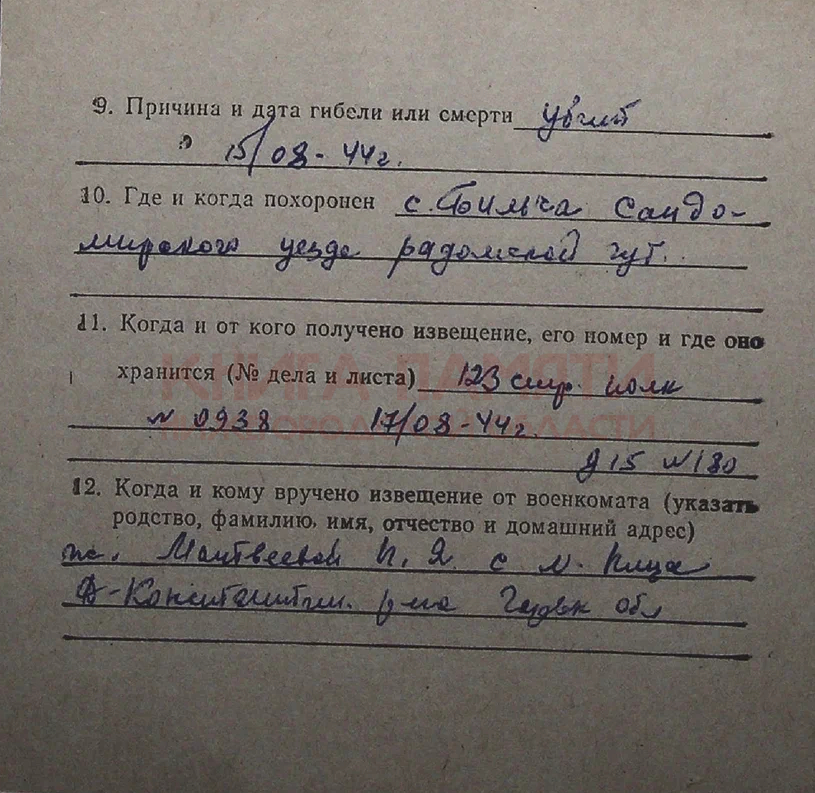 9. Причина и дата гибели или смерти убит
15/08-44г.
10. Где и когда похоронен с. Бильча Сандо-
мирского уезда радомской губ.
11. Когда и от кого получено извещение, его номер и где оно
КНИГА ПАМЯТИ
хранится (№ дела и листа) 123 стр. полк
№ 0938 17/08-44г.
НИЖЕГОРОДСКОЙ ОБЛАСТИ
д 15 № 180
12. Когда и кому вручено извещение от военкомата (указать
родство, фамилию, имя, отчество и домашний адрес)
ж. Матвеевой П. Я. с М. Пица
Д-Константин. р-на Горьк обл